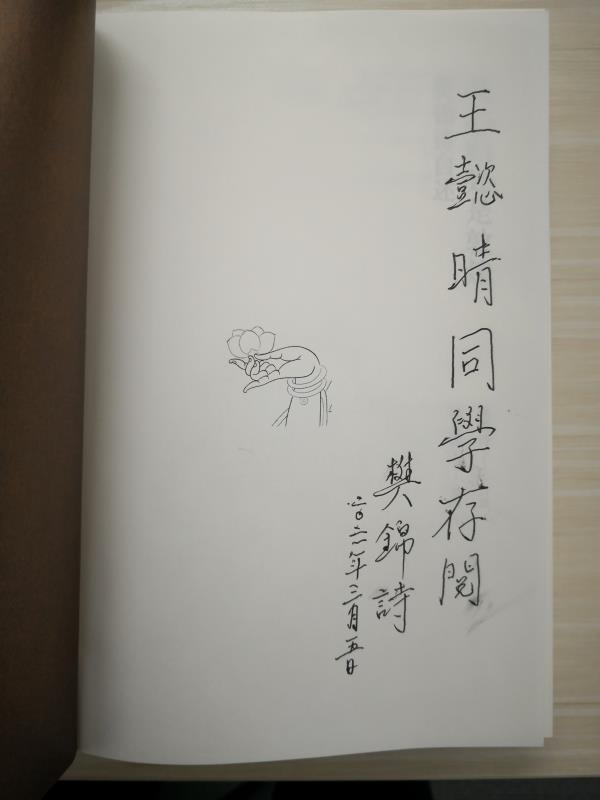 王懿晴同學存閱
樊錦詩
二〇二一年三月五日